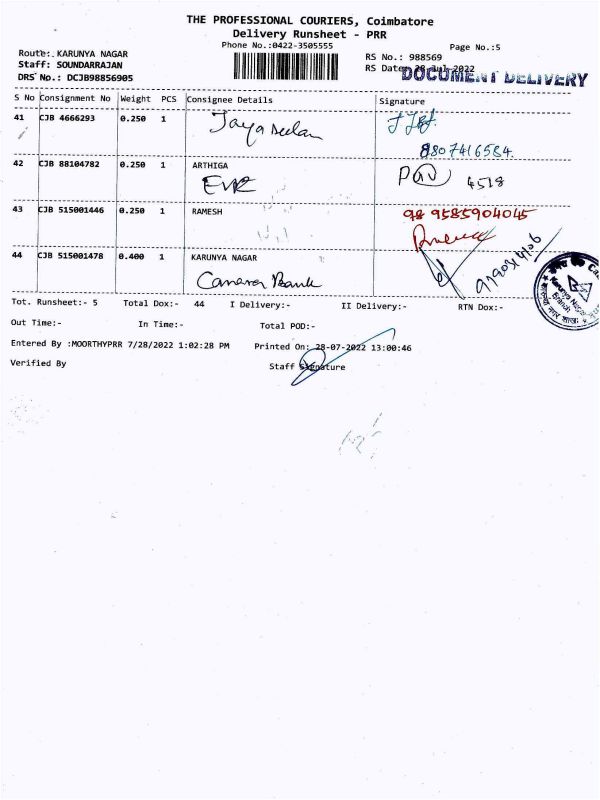 THE PROFESSIONAL COURIERS, Coimbatore
Delivery Runsheet - PRR
Phone No.:0422-3505555
Page No.:5
Route:. KARUNYA NAGAR
RS No.: 988569
Staff: SOUNDARRAJAN
RS Date: 28-Jul-2022
DOCUMENT DELIVERY
DRS No.: DCJB98856905
S No Consignment No Weight PCS Consignee Details Signature
41 CJB 4666293 0.250 1
8807416584.
42 CJB 88104782 0.250 1 ARTHIGA
EVR
4518
43 CJB 515001446 0.250 1 RAMESH
98 9585904045
44 CJB 515001478 0.400 1 KARUNYA NAGAR
Canara Bank
Karunya Nagar
Branch
Tot. Runsheet:- 5 Total Dox:- 44 I Delivery:- II Delivery:- RTN Dox:-
Out Time:- In Time:- Total POD:-
Entered By :MOORTHYPRR 7/28/2022 1:02:28 PM Printed On: 28-07-2022 13:00:46
Verified By Staff Signature